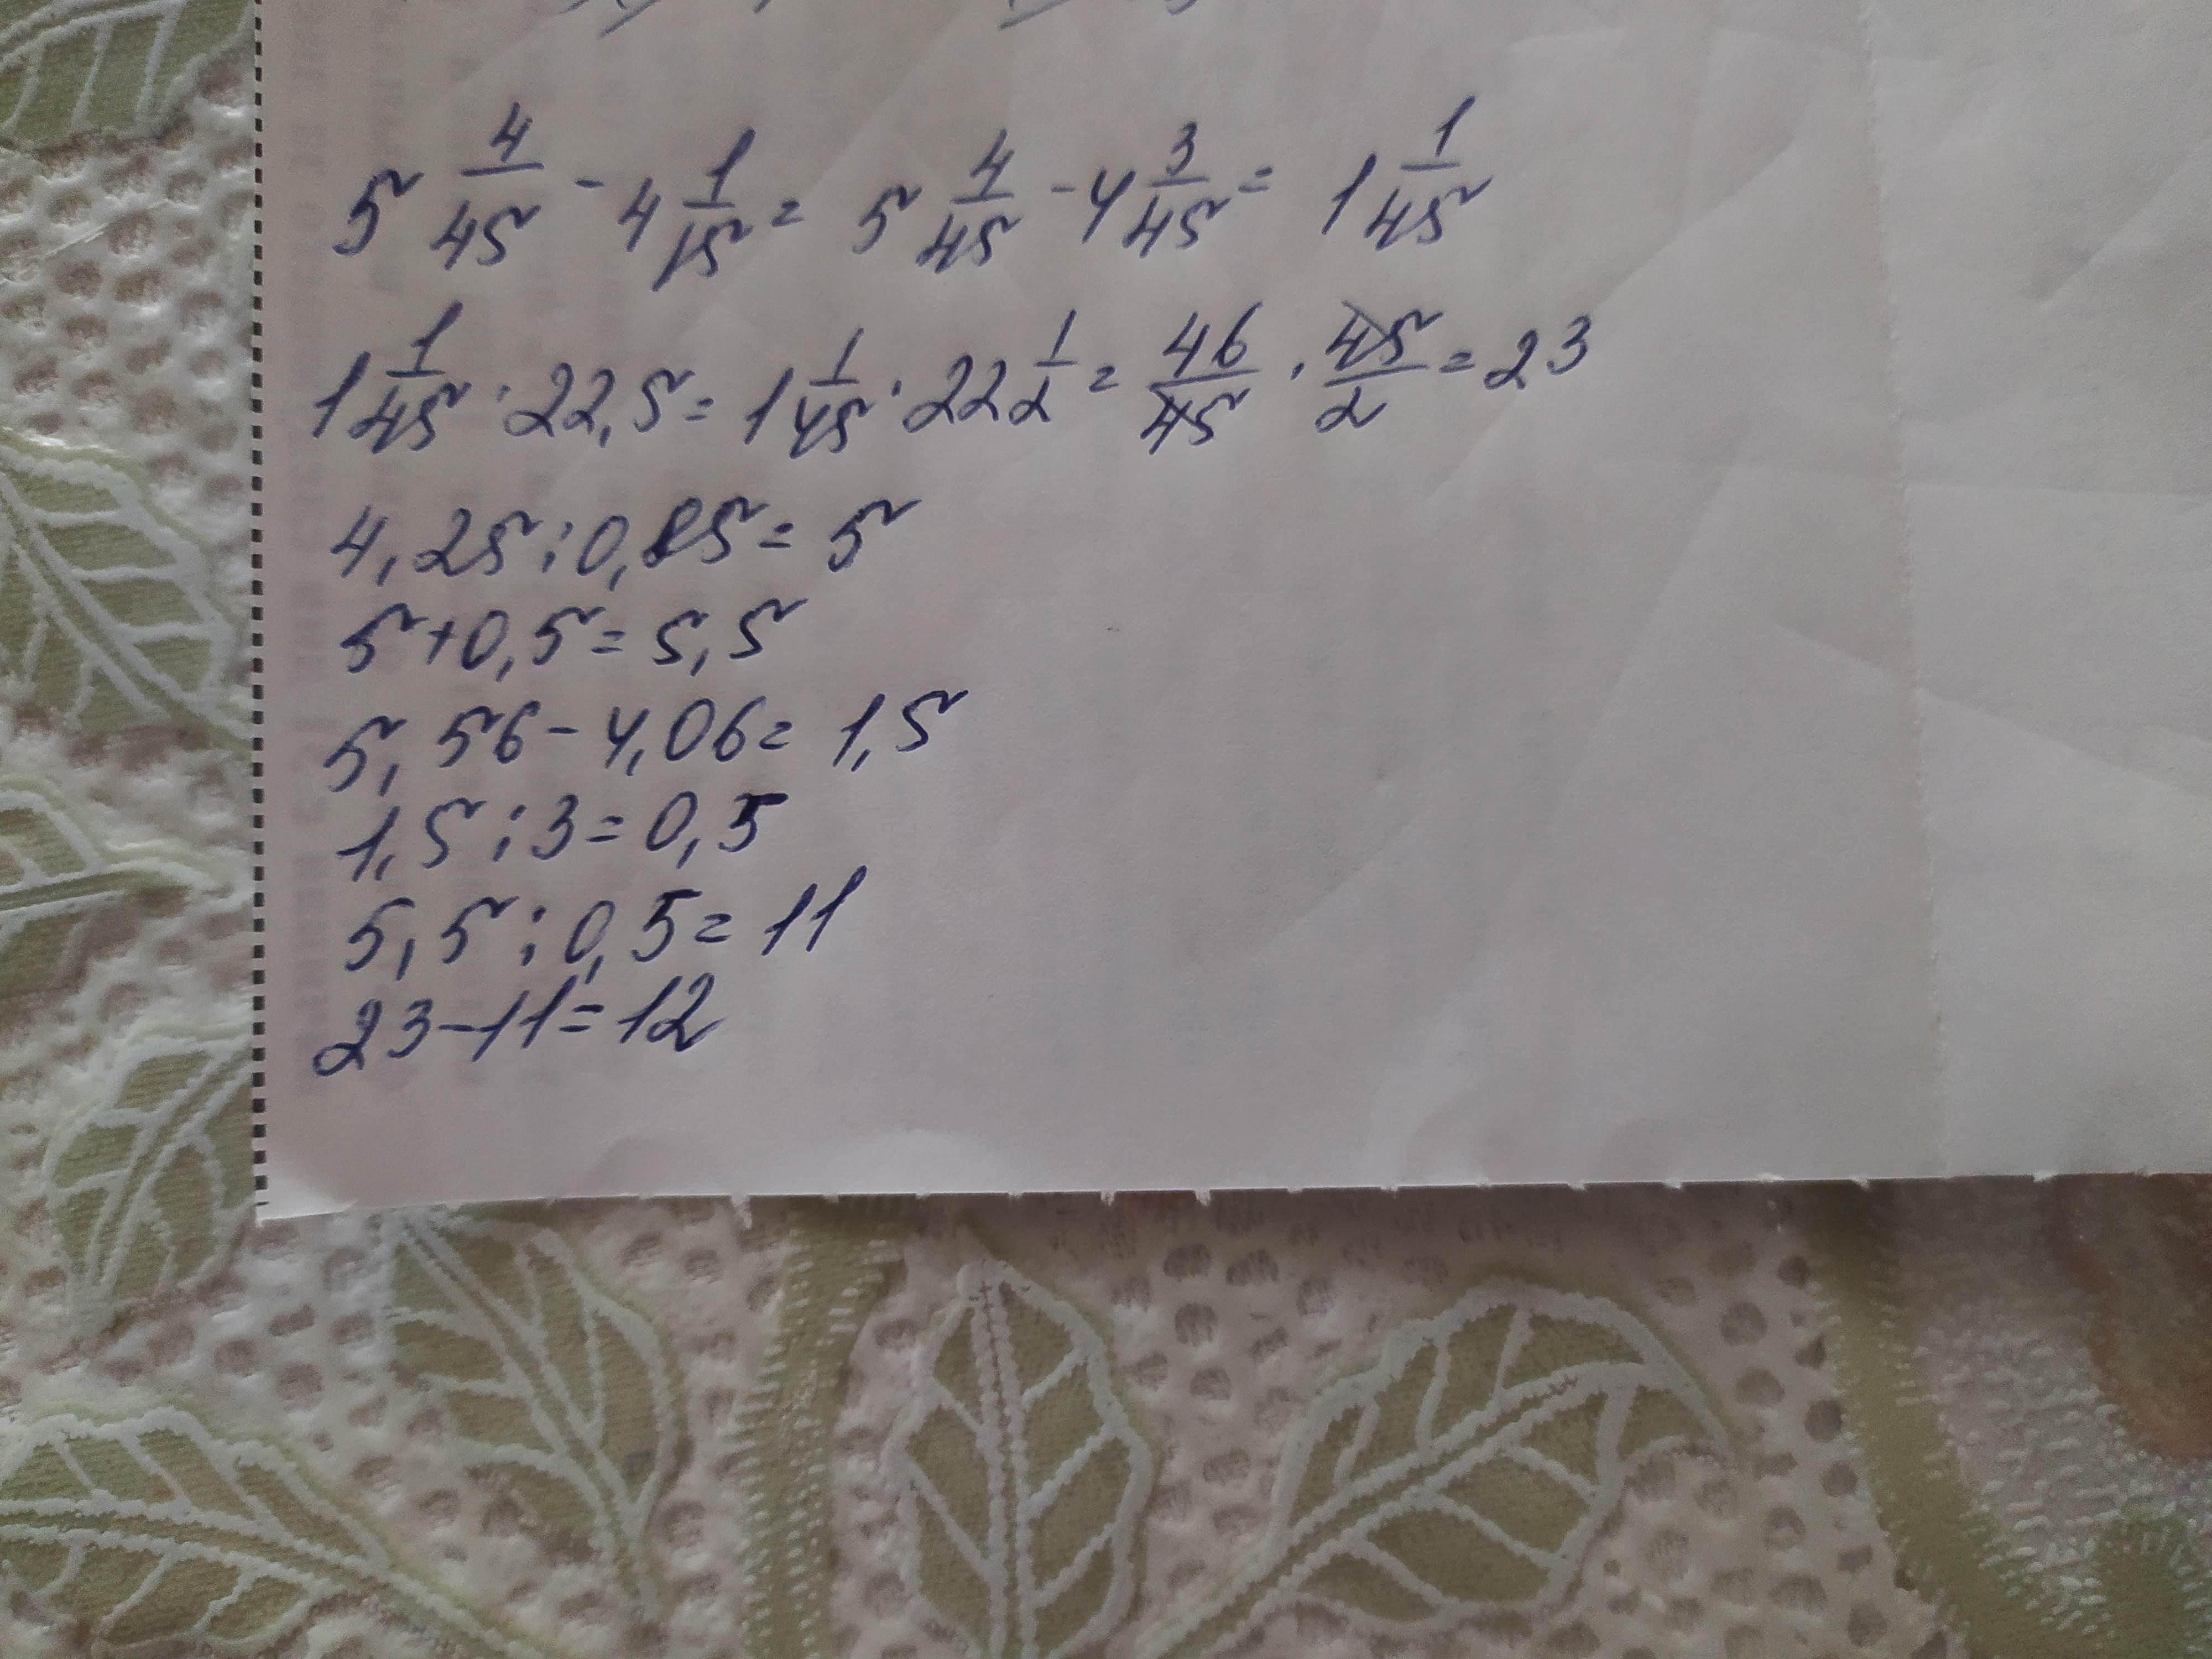 5 4/45 - 4 1/15 = 5 4/45 - 4 3/45 = 1 1/45
1 1/45 · 22,5 = 1 1/45 · 22 1/2 = 46/45 · 45/2 = 23
4,25 : 0,85 = 5
5 + 0,5 = 5,5
5,56 - 4,06 = 1,5
1,5 : 3 = 0,5
5,5 : 0,5 = 11
23 - 11 = 12